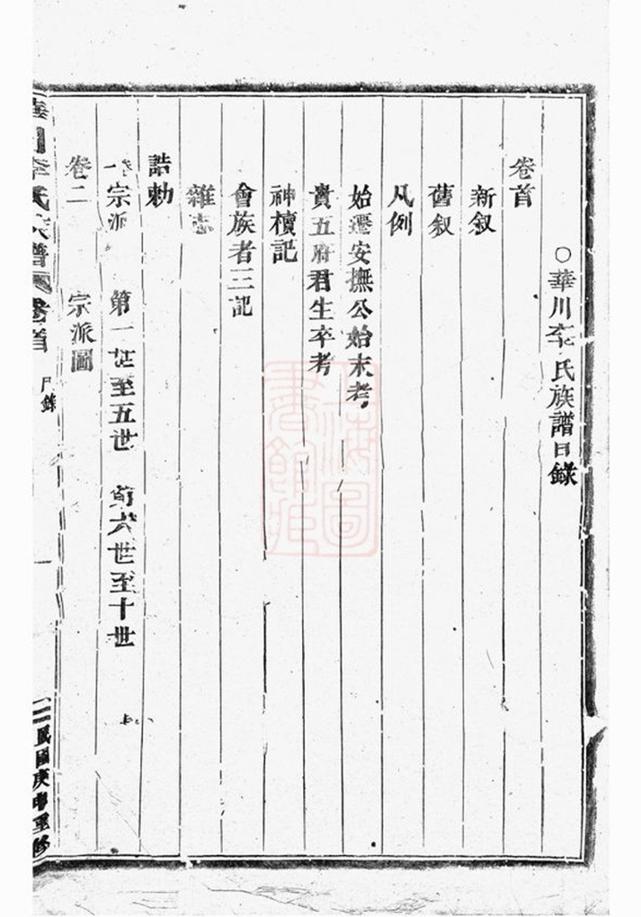 ○華川李氏族譜目錄
卷首
新叙
舊叙
凡例
始遷安撫公始末考
貴五府君生卒考
神櫝記
會族者三記
雜志
誥勅
宗派 第一世至五世 第六世至十世
卷二 宗派圖
華川李氏族譜 卷首 目錄 一 民國庚辰重修
上海圖書館藏